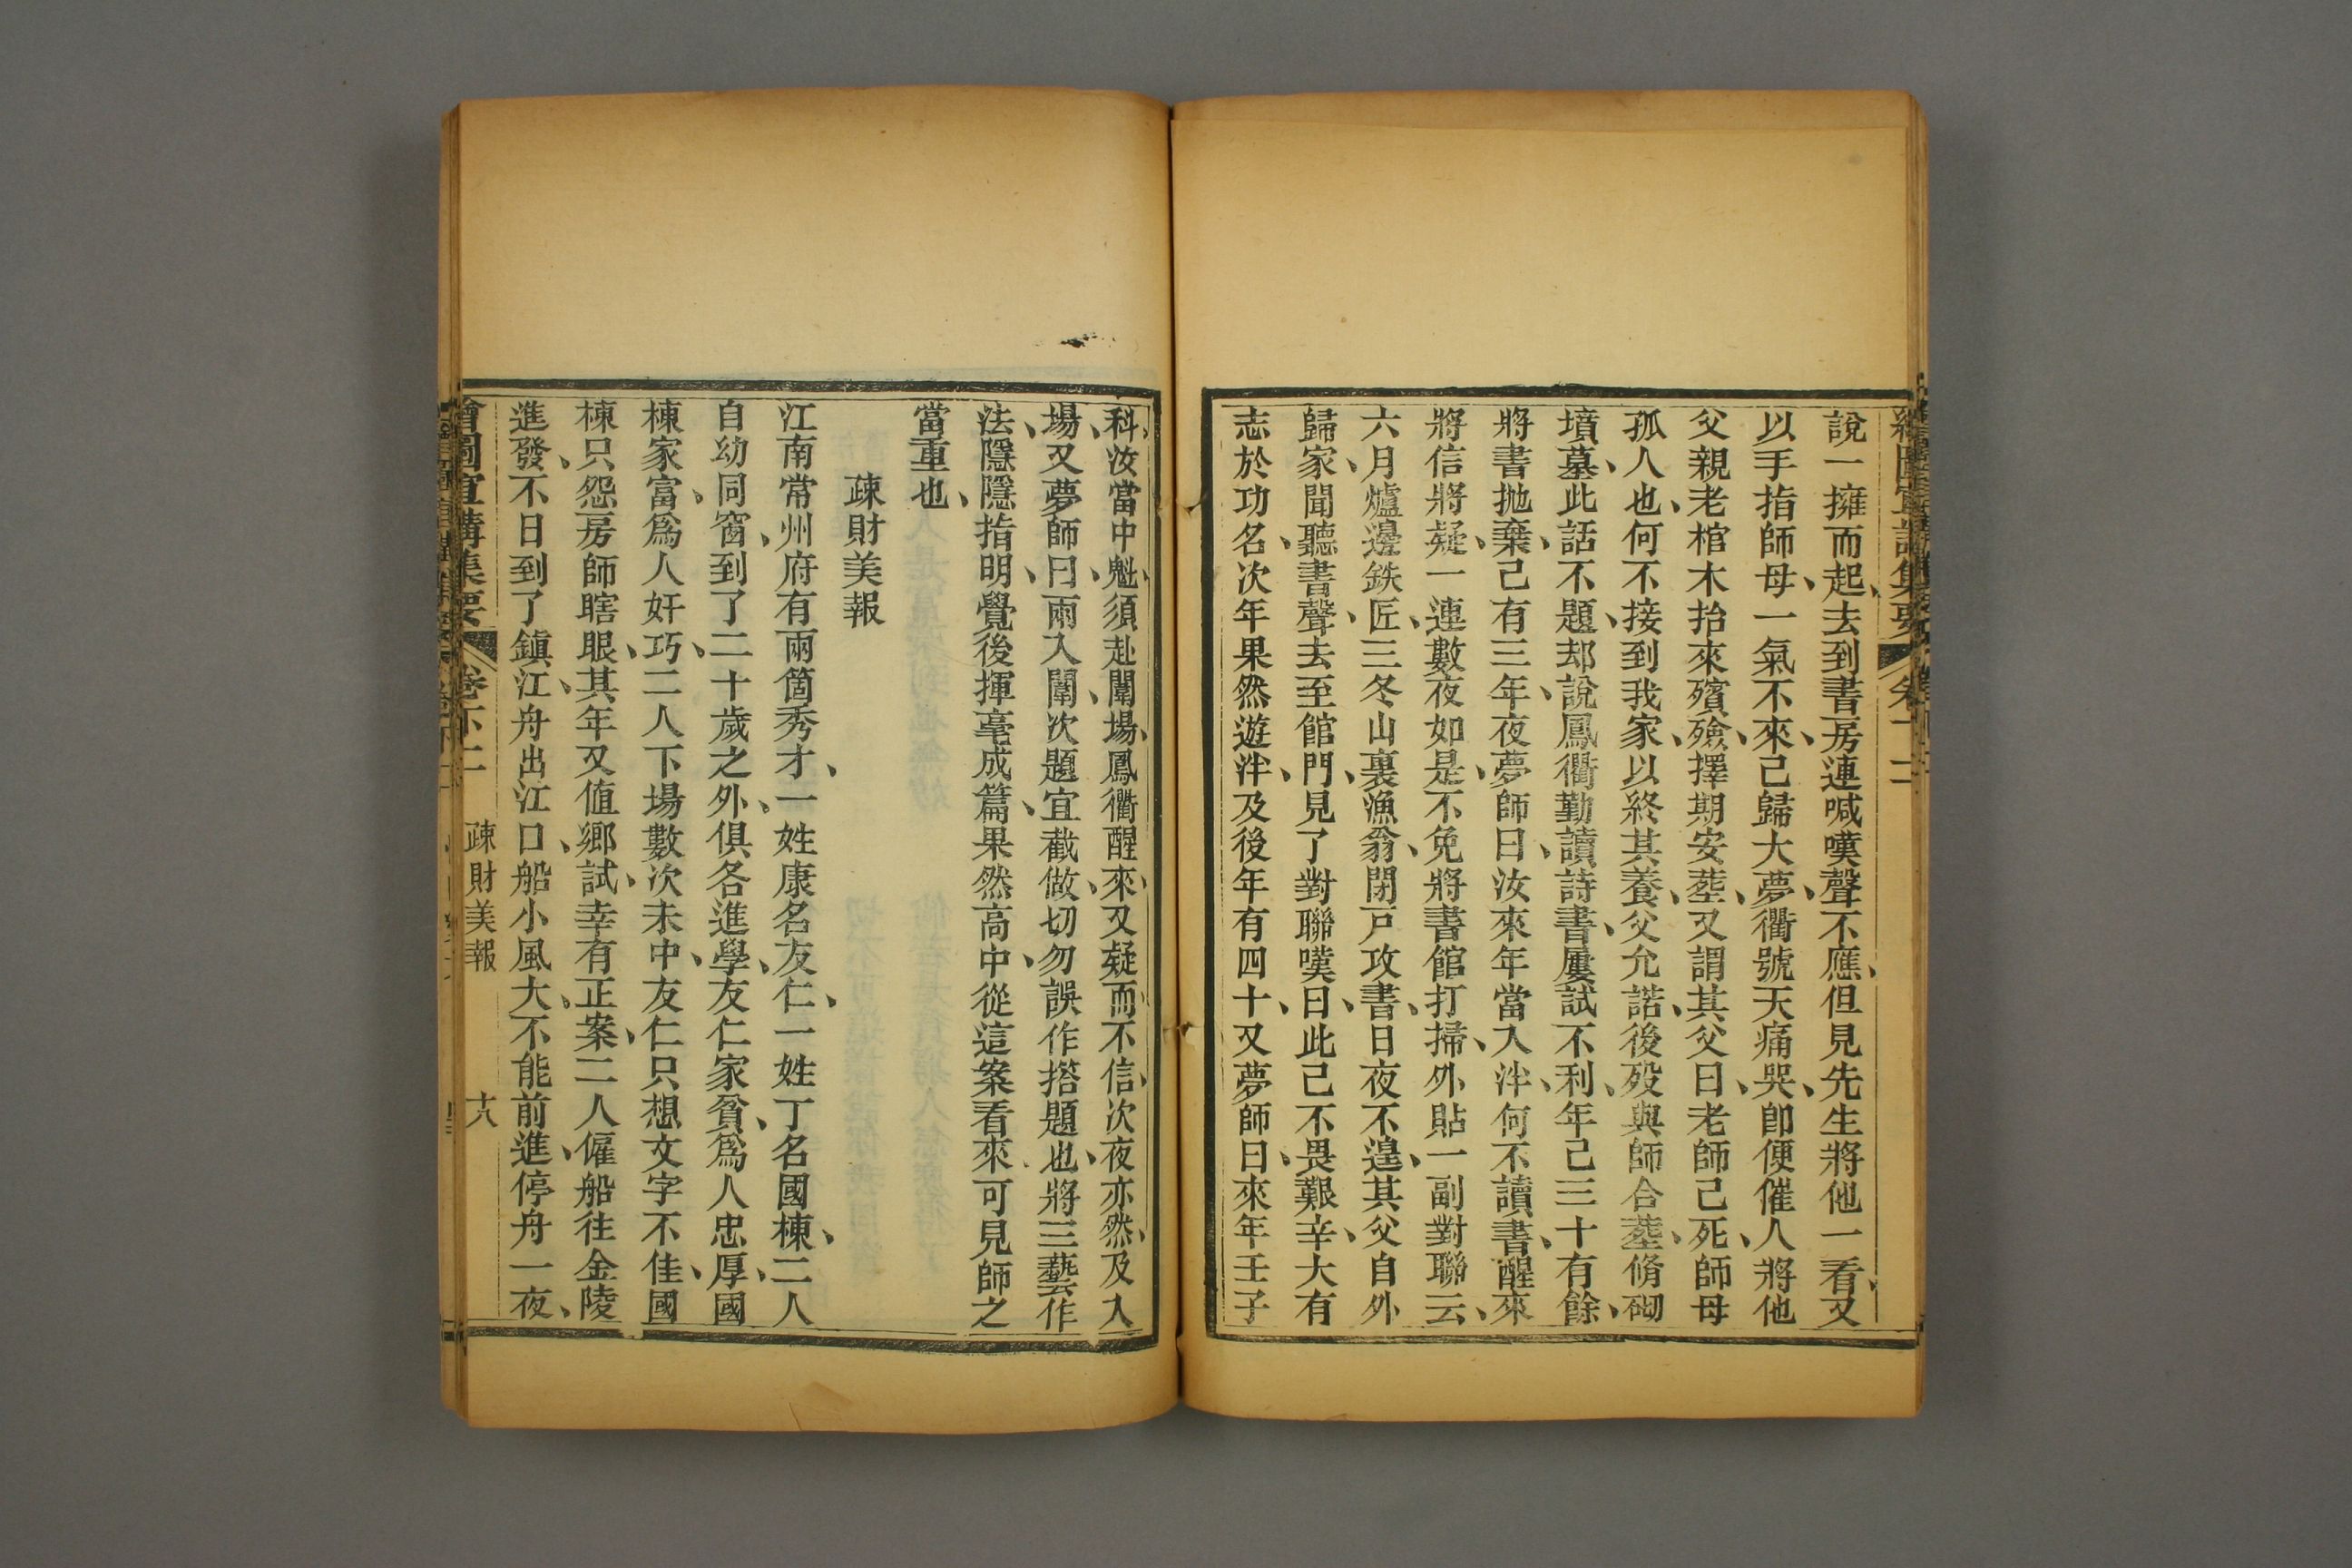 說一擁而起、去到書房連喊嘆聲不應、但見先生將他一看、又
以手指師母、一氣不來、己歸大夢、衢號天痛哭、卽便催人將他
父親老棺木抬來殯殮、擇期安塟、又謂其父曰、老師己死、師母
孤人也、何不接到我家、以終其養、父允諾、後殁與師合塟、脩砌
墳墓、此話不題、却說鳳衢勤讀詩書、屢試不利、年己三十有餘、
將書抛棄、己有三年、夜夢師曰、汝來年當入泮、何不讀書、醒來
將信將疑、一連數夜如是、不免將書館打掃、外貼一副對聯云、
六月爐邊鉄匠、三冬山裏漁翁、閉戸攻書、日夜不遑、其父自外
歸家、聞聽書聲、去至館門、見了對聯嘆曰、此己不畏艱辛、大有
志於功名、次年果然遊泮、及後年有四十、又夢師曰、來年壬子
科、汝當中魁、須赴闈場、鳳衢醒來、又疑而不信、次夜亦然、及入
場、又夢師曰、兩入闈、次題宜截做、切勿誤作搭題也、將三藝作
法、隱隱指明、覺後揮毫成篇、果然高中、從這案看來、可見師之
當重也、
疎財美報
江南常州府有兩箇秀才、一姓康名友仁、一姓丁名國棟、二人
自幼同窗、到了二十歲之外、俱各進學、友仁家貧、爲人忠厚、國
棟家富、爲人奸巧、二人下場數次未中、友仁只想文字不佳、國
棟只怨房師瞎眼、其年又值鄉試、幸有正案、二人僱船往金陵
進發、不日到了鎮江、舟出江口、船小風大、不能前進、停舟一夜、
繪圖宣講集要 卷下二 疎財美報 十八